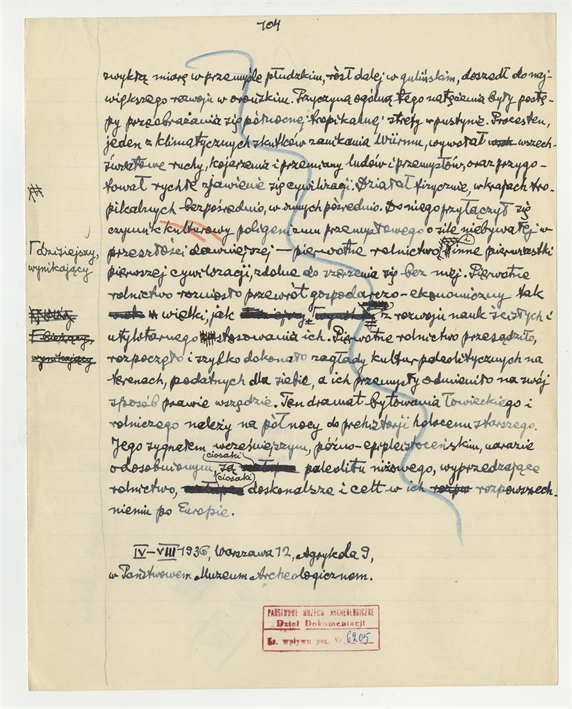 104
zwykłą miarę w przemyśle płudzkim, rósł dalej w gulińskim, doszedł do naj-
większego rozwoju w oruńskim. Przyczyną ogólną tego natężenia były postę-
py przeobrażania się północnej tropikalnej strefy w pustynię. Proces ten,
jeden z klimatycznych skutków zanikania Würmu, wywołał wszech-
światowe ruchy, kojarzenia i przemiany ludów i przemysłów, oraz przygo-
tował rychłe zjawienie się cywilizacji. Działał fizycznie, w krajach tro-
pikalnych bezpośrednio, w innych pośrednio. Do niego przyłączył się
czynnik kulturowy poligenizmu przemysłowego o sile niebywałej w
przeszłości dawniejszej — pierwotne rolnictwo i inne pierwiastki
pierwszej cywilizacji, zdolne do szerzenia się bez niej. Pierwotne
rolnictwo rozniosło przewrót gospodarczo-ekonomiczny tak
wielki, jak z rozwoju nauk ścisłych i
utylitarnego stosowania ich. Pierwotne rolnictwo przesądziło,
rozpoczęło i szybko dokonało zagłady kultur paleolitycznych na
terenach, podatnych dla siebie, a ich przemysły odmieniło na swój
sposób prawie wszędzie. Ten dramat bytowania łowieckiego i
rolniczego należy na północy do prehistorji holocenu starszego.
Jego sygnałem wcześniejszym, późno-epipleistoceńskim, narazie
odosobnionym, są ciosaki paleolitu niżowego, wyprzedzające
rolnictwo, ciosaki doskonalsze i celt w ich rozpowszech-
nieniu po Europie.
dzisiejszy,
wynikający
IV–VIII 1936, Warszawa 12, Agrykola 9,
w Państwowem Muzeum Archeologicznem.
PAŃSTWOWE MUZEUM ARCHEOLOGICZNE
Dział Dokumentacji
Ks. wpływu poz. Nr 6205